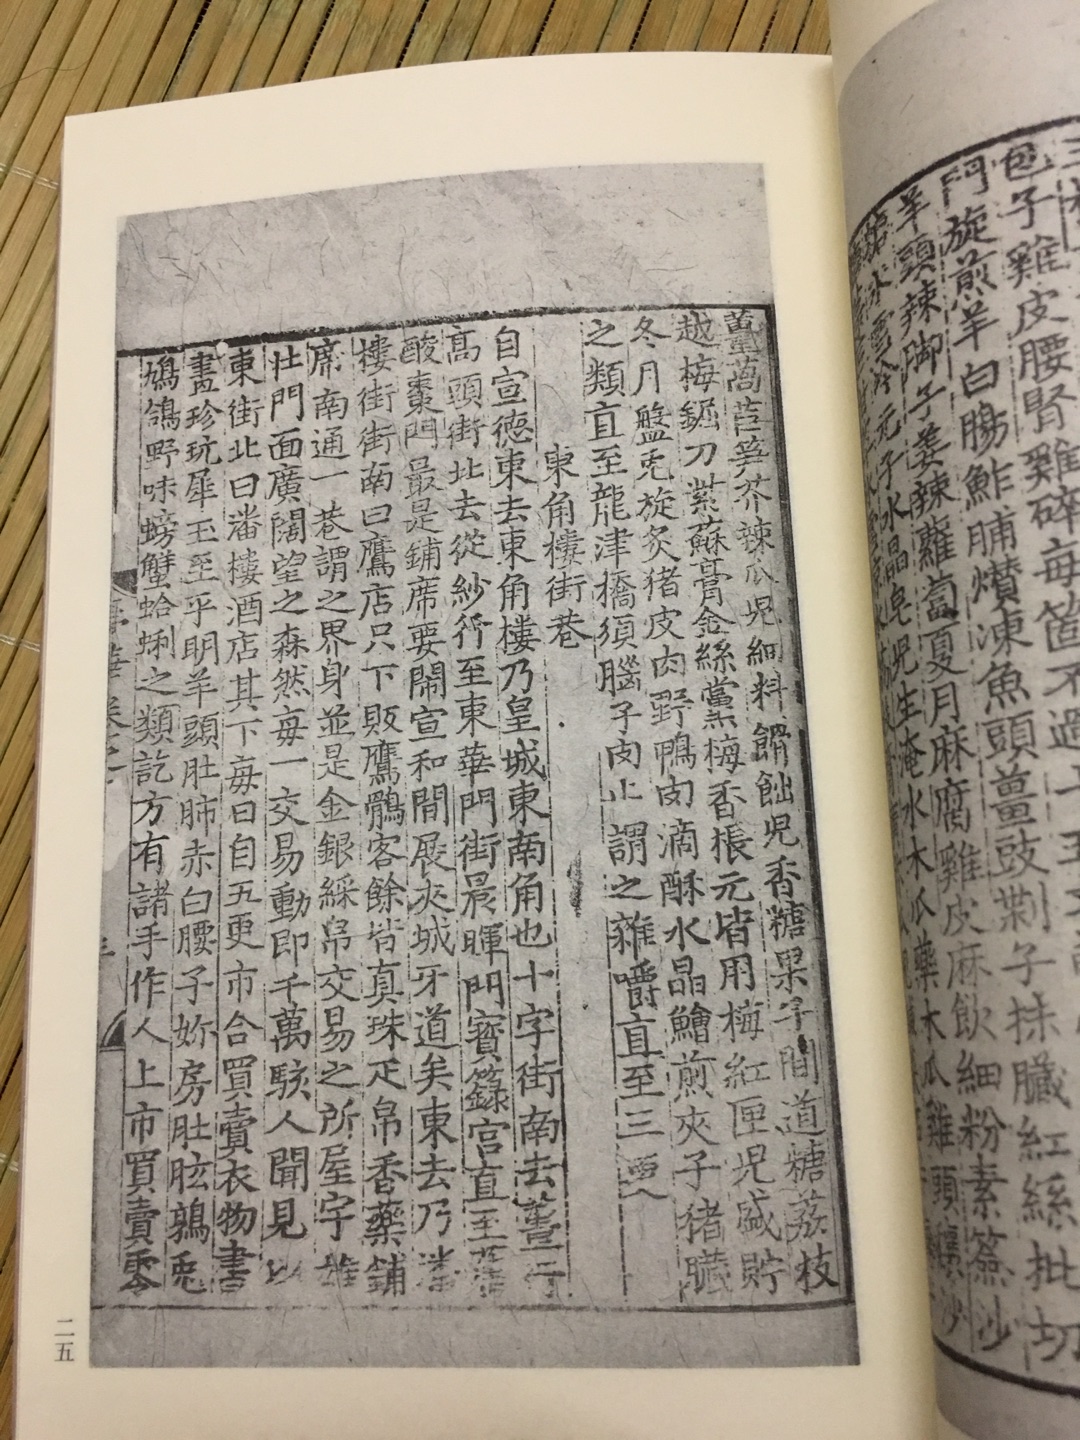 包子雞皮腰腎雞碎每箇不過十五文
門旋煎羊白腸鮓脯㸇凍魚頭薑豉剿子抹臟紅絲批切
羊頭辣脚子姜辣蘿蔔夏月麻腐雞皮麻飲細粉素簽沙
糖冰雪冷元子水晶皂児生淹水木瓜藥木瓜雞頭穰沙
薑萵苣笋芥辣瓜児細料餶飿児香糖果子間道糖荔枝
越梅鋸刀紫蘇膏金絲黨梅香棖元皆用梅紅匣児盛貯
冬月盤兎旋炙猪皮肉野鴨肉滴酥水晶鱠煎夾子猪臟
之類直至龍津橋須腦子肉止謂之雜嚼直至三更
東角樓街巷
自宣德東去東角樓乃皇城東南角也十字街南去薑行
高頭街北去從紗行至東華門街晨暉門寳籙宫直至舊
酸棗門最是鋪席要鬧宣和間展夾城牙道矣東去乃潘
樓街街南曰鷹店只下販鷹鶻客餘皆真珠疋帛香藥鋪
席南通一巷謂之界身並是金銀綵帛交易之所屋宇雄
壯門面廣闊望之森然每一交易動即千萬駭人聞見以
東街北曰潘樓酒店其下每日自五更市合買賣衣物書
畫珍玩犀玉至乎明羊頭肚肺赤白腰子妳房肚胘鶉兎
鳩鴿野味螃蟹蛤蜊之類訖方有諸手作人上市買賣零
二五